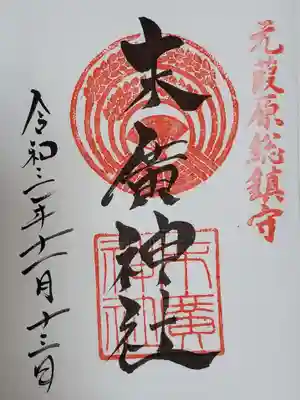 元葭原総鎮守
末廣神社
末廣神社
令和二年十一月十三日